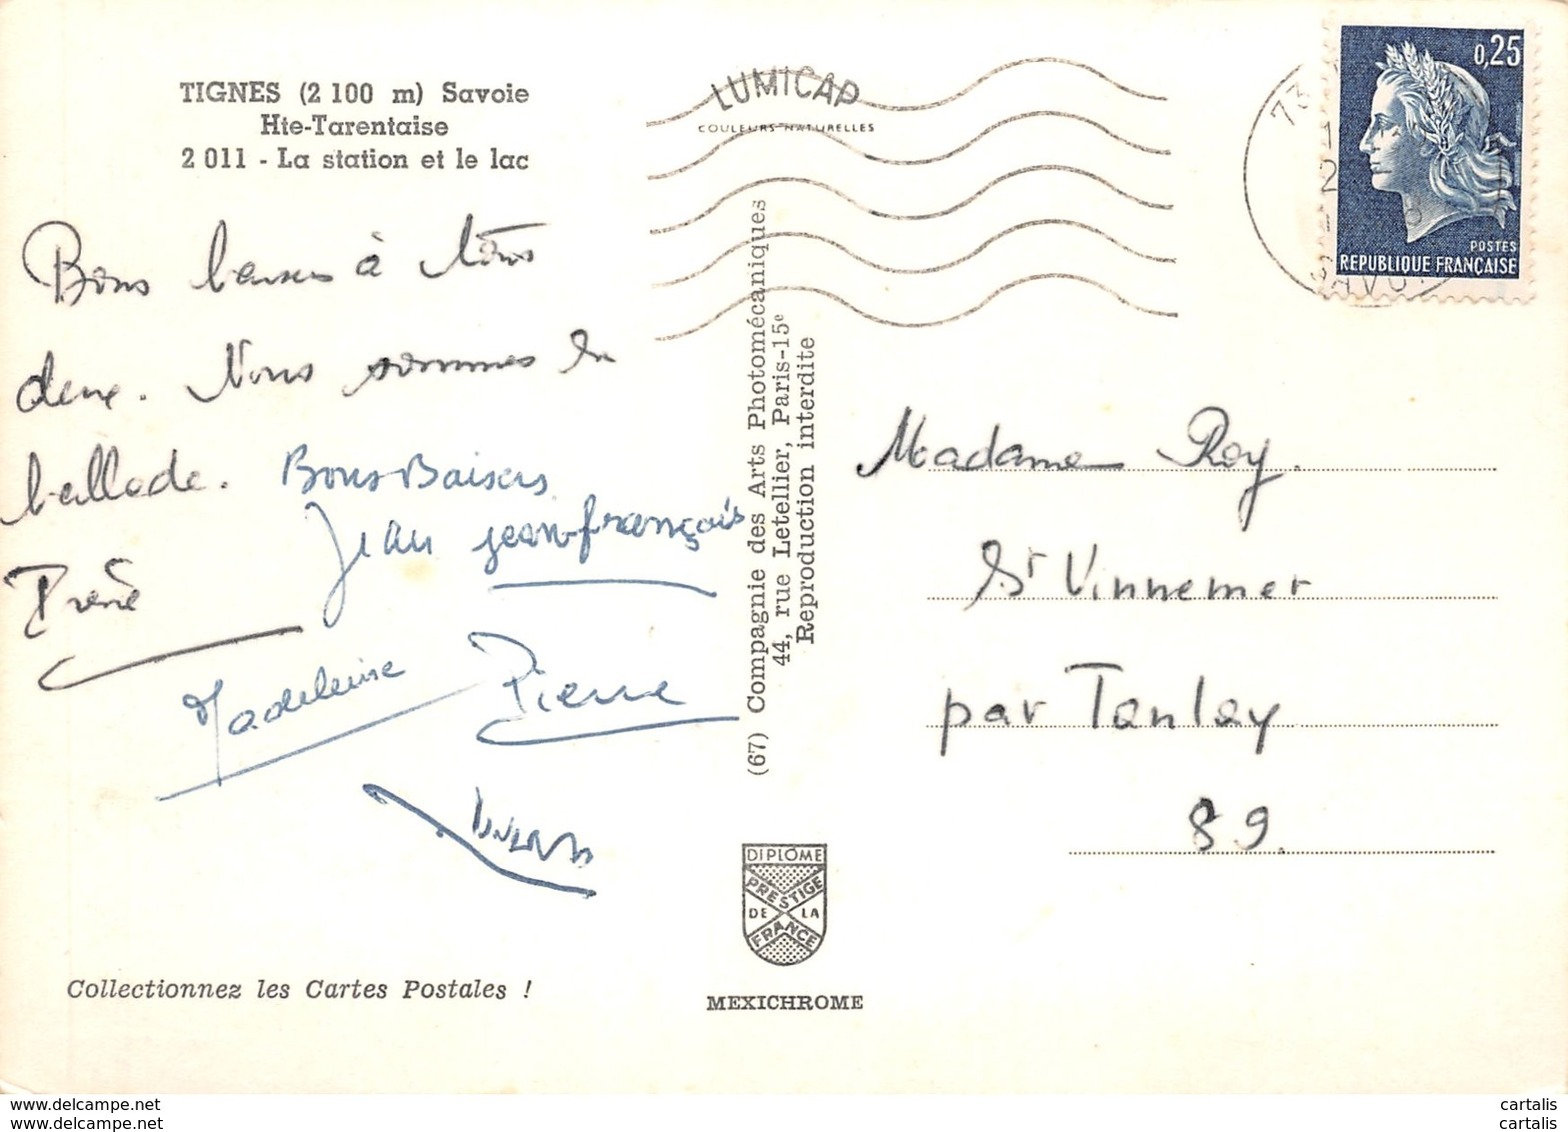 TIGNES (2 100 m) Savoie
Hte-Tarentaise
2 011 - La station et le lac
LUMICAP
COULEURS NATURELLES
73
SAVOIE
0,25
POSTES
REPUBLIQUE FRANÇAISE
Bons baisers à tous
deux. Nous sommes en
ballade. Bons Baisers
Jean jean-françois
Madeleine Pierre
(67) Compagnie des Arts Photomécaniques
44, rue Letellier, Paris-15e
Reproduction interdite
Madame Roy.
St Vinnemer
par Tanlay
89.
DIPLOME
PRESTIGE
DE LA
FRANCE
MEXICHROME
Collectionnez les Cartes Postales !
www.delcampe.net cartalis
www.delcampe.net cartalis